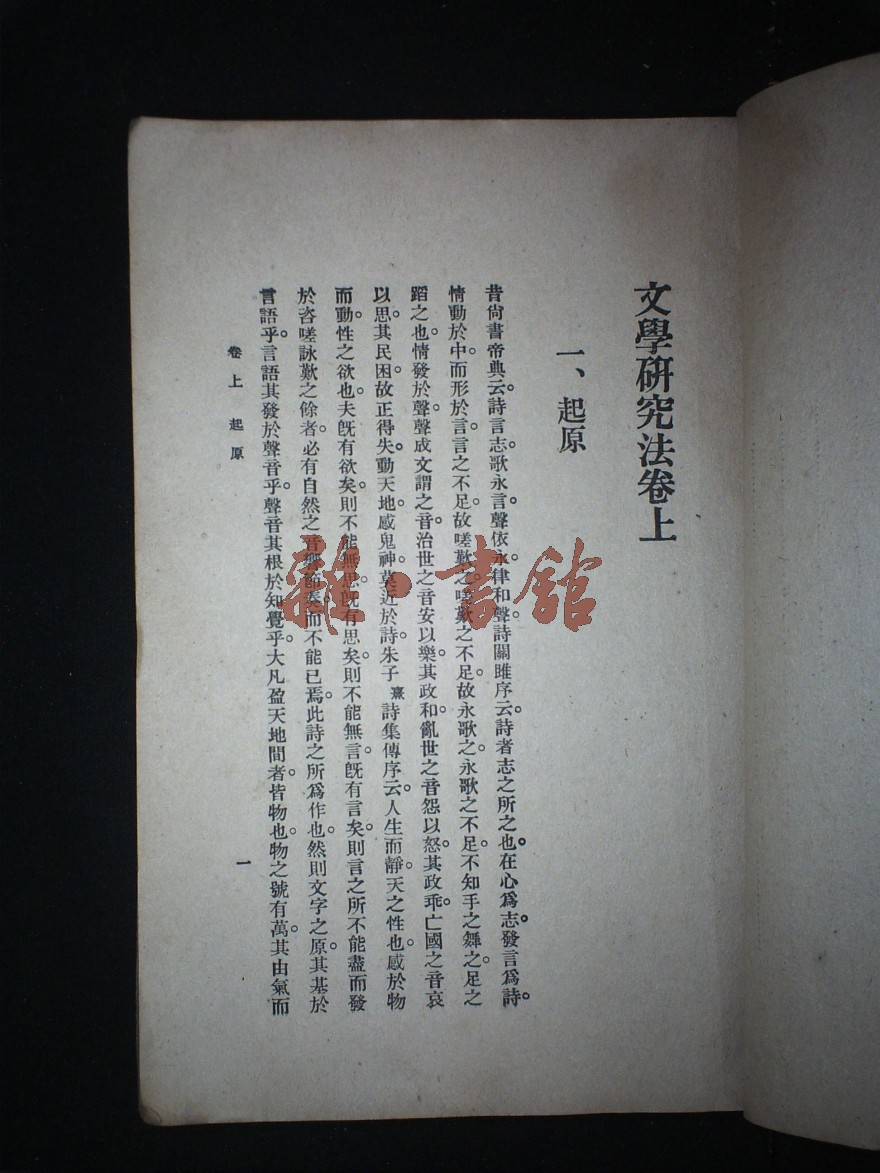 文學研究法卷上
一、起原
昔尙書帝典云。詩言志。歌永言。聲依永。律和聲。詩關雎序云。詩者志之所之也。在心爲志。發言爲詩。
情動於中。而形於言。言之不足。故嗟歎之。嗟歎之不足。故永歌之。永歌之不足。不知手之舞之。足之
蹈之也。情發於聲。聲成文謂之音。治世之音安以樂。其政和。亂世之音怨以怒。其政乖。亡國之音哀
以思。其民困。故正得失。動天地。感鬼神。莫近於詩。朱子熹詩集傳序云。人生而靜。天之性也。感於物
而動。性之欲也。夫旣有欲矣。則不能無思。旣有思矣。則不能無言。旣有言矣。則言之所不能盡而發
於咨嗟詠歎之餘者。必有自然之音響節奏。而不能已焉。此詩之所爲作也。然則文字之原。其基於
言語乎。言語其發於聲音乎。聲音其根於知覺乎。大凡盈天地間者。皆物也。物之號有萬。其由氣而
卷上 起原
一
雜·書館